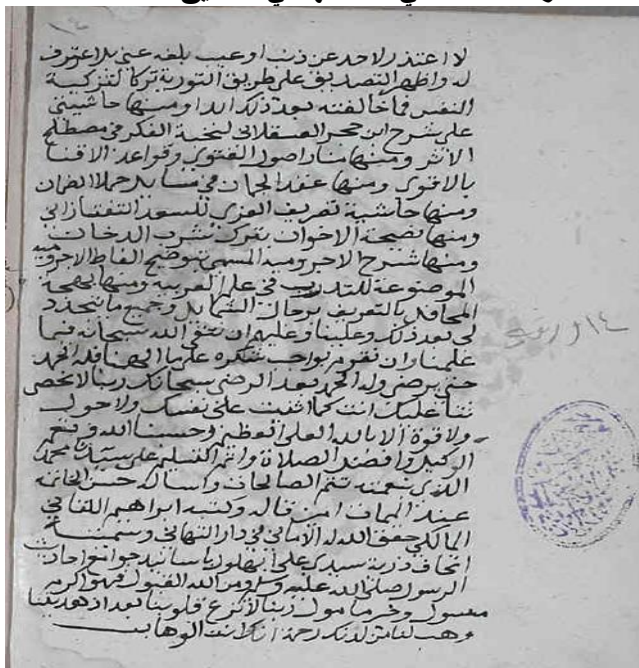 لا اعتذر لاحد عن ذنب او عيب بلغه عني بلا اعترف
له واظهر التصديق على طريق التورية تركا لتزكية
النفس فما خالفته بعد ذلك ابدا ومنها حاشيتي
على شرح ابن حجر العسقلاني لنخبة الفكر في مصطلح
الاثر ومنها منار اصول الفتوى وقواعد الافتا
بالاقوى ومنها عقد الجمان في مسايل الضمان
ومنها حاشية تعريف العزي للسعد التفتازاني
ومنها نصيحة الاخوان بترك شرب الدخان
ومنها شرح الاجرومية المسمى بتوضيح الفاظ الاجرومية
الموضوعة للتدريب في علم العربية ومنها بهجة
المحافل بالتعريف برجال الشمايل وجميع ما يتجدد
لي بعد ذلك وعلينا وعليهم ان نتقي الله سبحانه فيما
علمنا وان نقوم بواجب شكره على ما الهمنا فله الحمد
حتى يرضى وله الحمد بعد الرضى سبحانك ربنا لا نحصي
ثنا عليك انت كما اثنيت على نفسك ولا حول
ولا قوة الا بالله العلي العظيم وحسبنا الله ونعم
الوكيل وافضل الصلاة واتم التسليم على سيدنا محمد
الذي بنعمته تتم الصالحات واساله حسن الخاتمة
عند الممات امين قاله وكتبه ابراهيم اللقاني
المالكي حقق الله له الاماني في دار التهاني وسميته
اتحاف ذرية سيدي علي ابن بهلول باسانيد جوامع احاديث
الرسول صلى الله عليه وسلم ومن الله القبول فهو اكرم
مسول وخير مامول ربنا لا تزغ قلوبنا بعد اذ هديتنا
وهب لنا من لدنك رحمة انك انت الوهاب